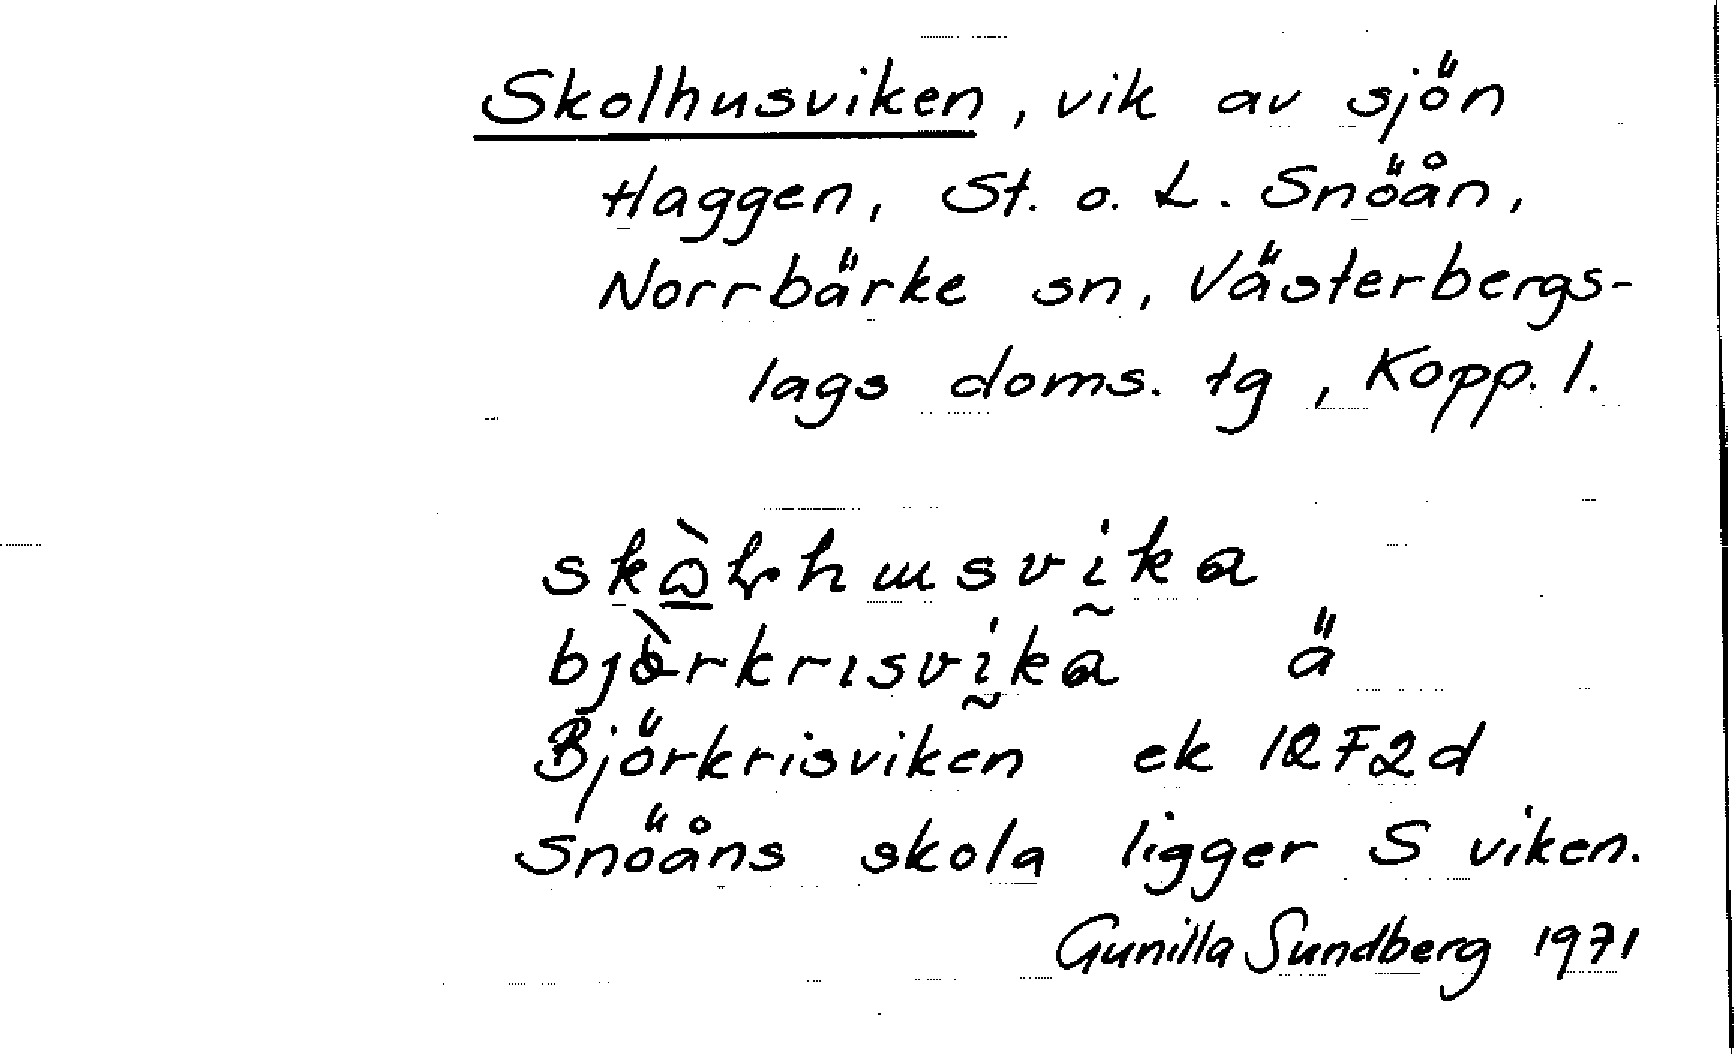 Skolhusviken, vik av sjön
Haggen, St. o. L. Snöån,
Norrbärke sn, Västerbergs-
lags doms. tg, Kopp. l.
björkrisvika ä
Björkrisviken ek 12F2d
Snöåns skola ligger S viken.
Gunilla Sundberg 1971